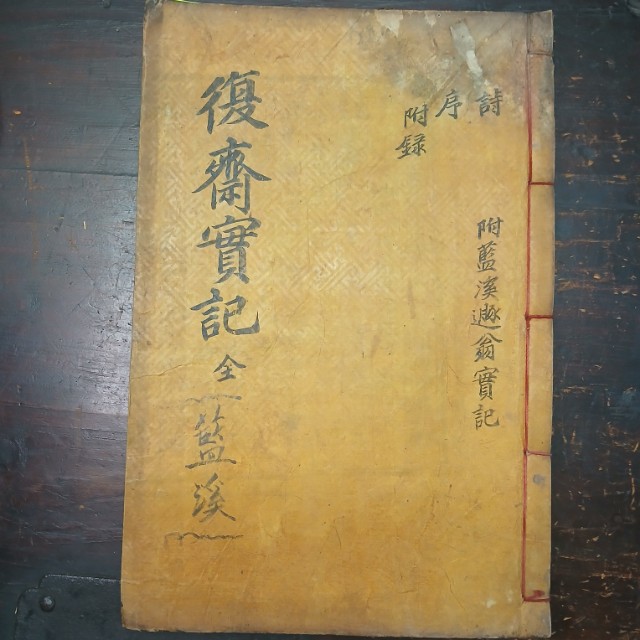 詩
序
附録
附藍溪遯翁實記
復齋實記 全
藍溪